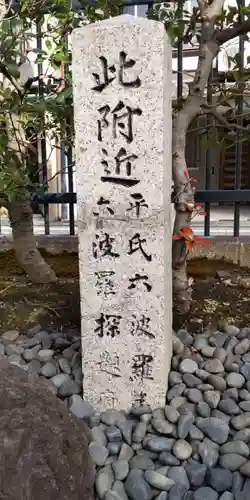 此附近
平氏六波羅第
六波羅探題府